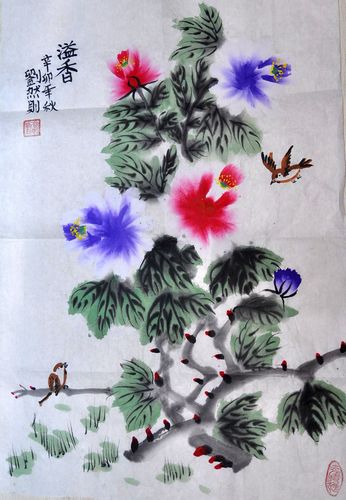 溢香
辛卯年秋
劉然則